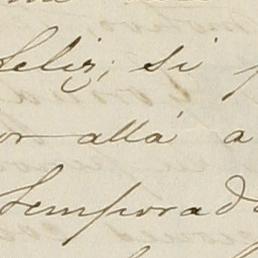 feliz; si
or allá a
temporad